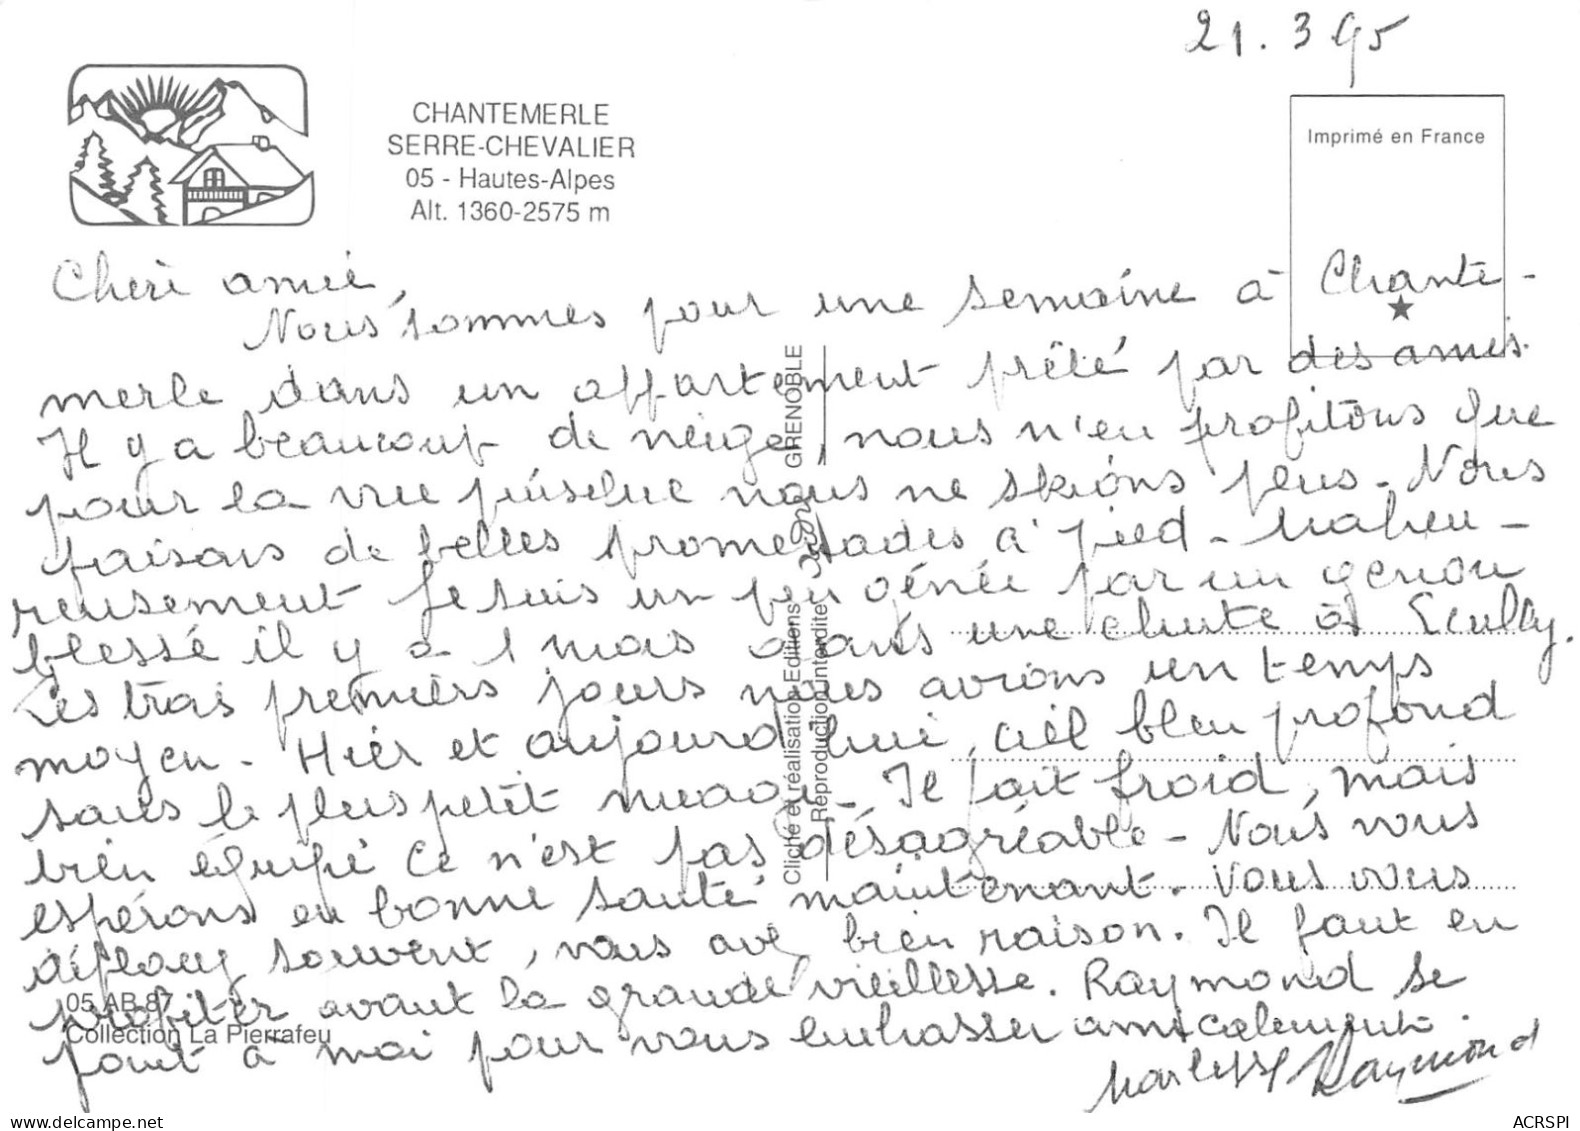 21.3 95
CHANTEMERLE
SERRE-CHEVALIER
05 - Hautes-Alpes
Alt. 1360-2575 m
Imprimé en France
Chère amie,
Nous sommes pour une semaine à Chante-
merle dans un appartement prêté par des amis.
Il y a beaucoup de neige, nous n'en profitons que
pour la vue puisque nous ne skions plus. Nous
faisons de belles promenades à pied - Malheu-
reusement je suis un peu gênée par un genou
blessé il y a 1 mois dans une chute à Ecully.
Les trois premiers jours nous avions un temps
moyen. Hier et aujourd'hui, ciel bleu profond
sans le plus petit nuage. Il fait froid, mais
bien équipé ce n'est pas désagréable - Nous vous
espérons en bonne santé maintenant. Vous vous
déplacez souvent, vous avez bien raison. Il faut en
profiter avant la grande vieillesse. Raymond se
joint à moi pour vous embrasser amicalement.
Raymond
GRENOBLE
Cliché et réalisation Editions
Reproduction interdite
05 AB 87
Collection La Pierrafeu
www.delcampe.net
ACRSPI